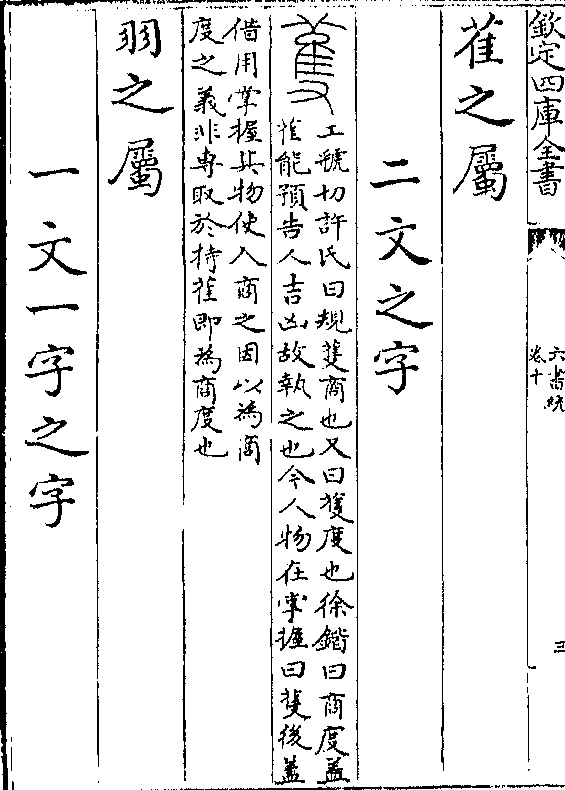 欽定四庫全書
六書統
卷十
三
萑之屬
二文之字
工號切許氏曰規蒦商也又曰蒦度也徐鍇曰商度蓋
萑能預告人吉凶故執之也今人物在掌握曰蒦後蓋
借用掌握其物使人商之因以為商
度之義非專取於持萑即為商度也
羽之屬
一文一字之字